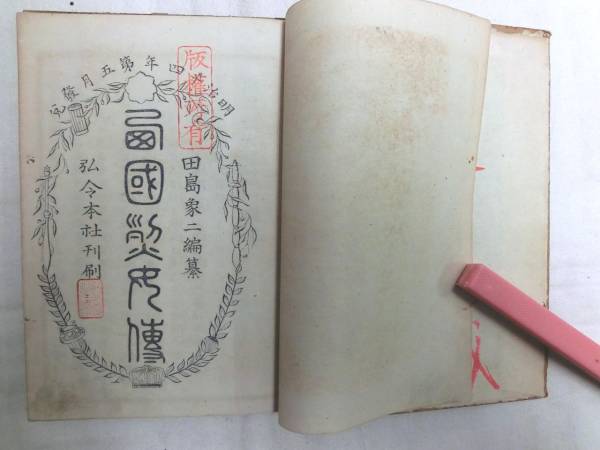 明治十四年第五月發兌
版權所有
田島象二編纂
西國烈女傳
弘令本社刊刷